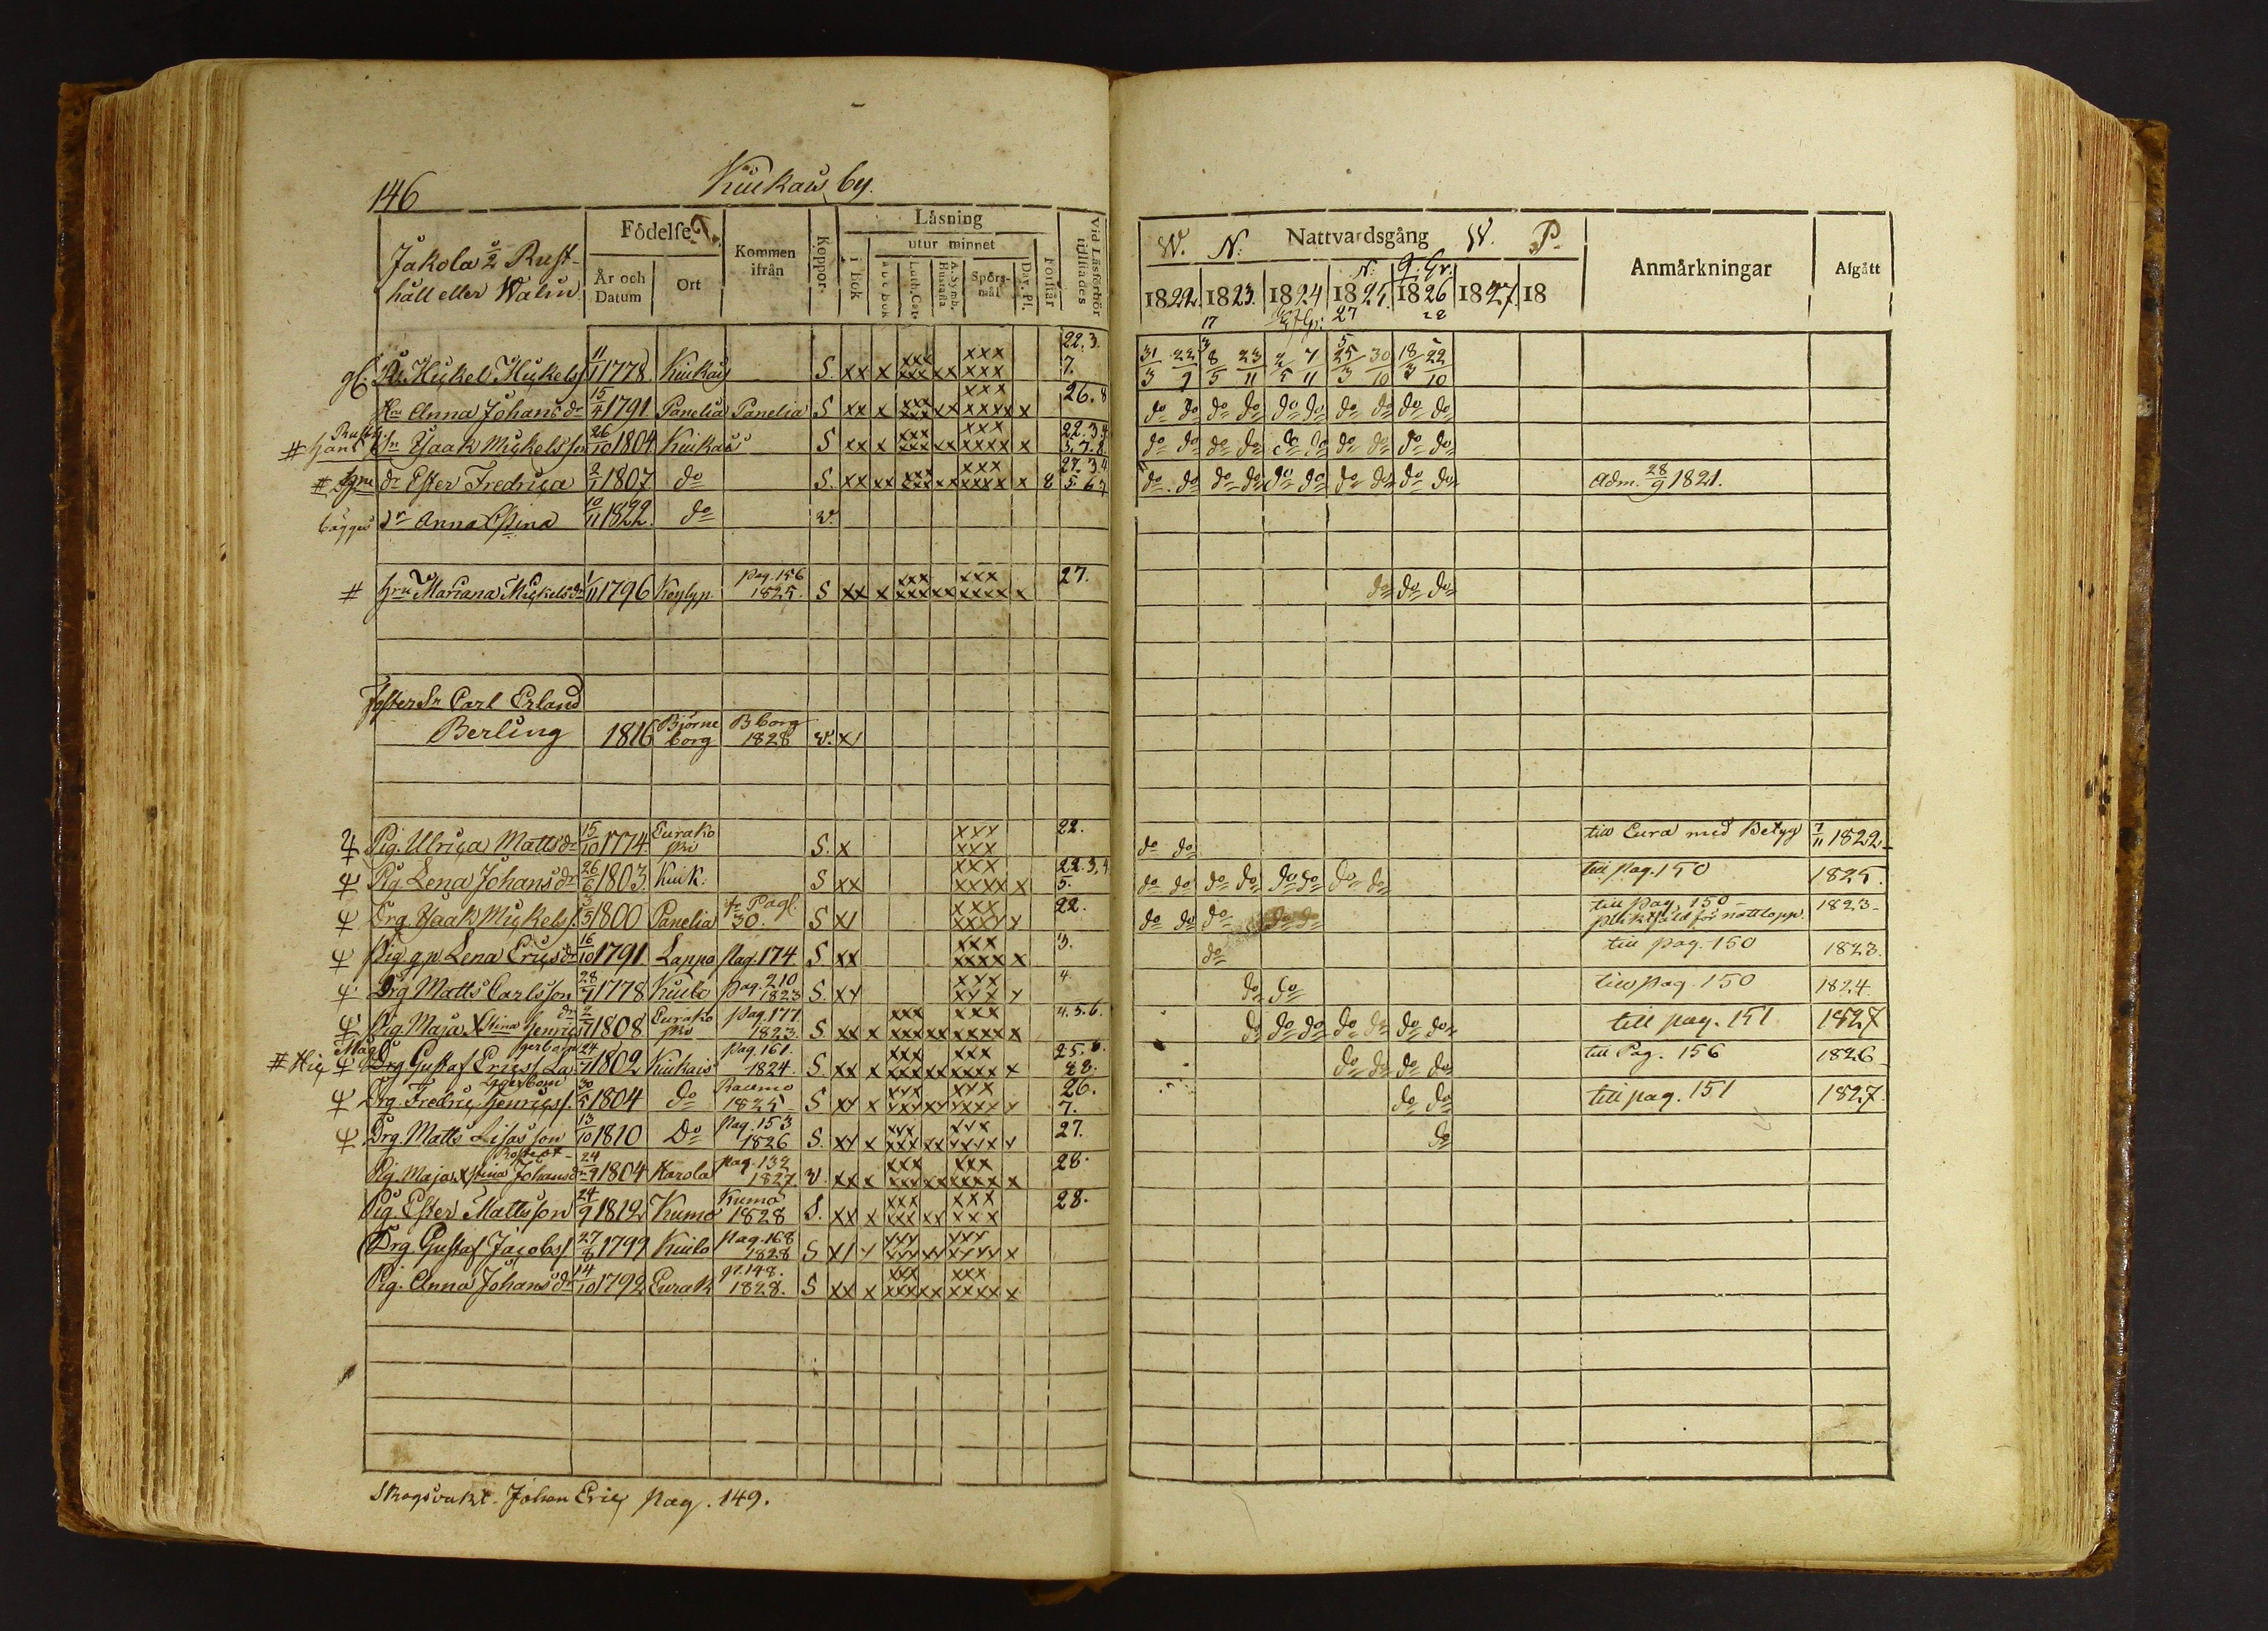 146
Kiukais by.
Jakola 2/2 Rust-
håll eller Walin.
Födelse
År och Datum
Ort
Kommen ifrån
Koppor.
Läsning
i Bok
utur minnet
a b c bok
Luth. Cat.
A. Symb. Hustafla
Spörsmål
Dav. Pl.
Förstår
Vid Läsförhör tillstädes
W. N: Nattvardsgång W. P.
1822. 1823. 1824 1825. 1826 1827. 18
Anmärkningar
Afgått
gl. Rr. Mickel Mickelss. 11/1 1778. Kiukais S. xx x xxx xxx xx xxx xxx 22.3. 7.
Hu Anna Johansdr 15/4 1791. Panelia Panelia S xx x xxx xxx xx xxx xxxx x 26.8 do do do do do do do do do do
Sn Isaak Mickelsson 26/10 1804 Kiukais S xx x xxx xxx xx xxx xxxx x 22.3.4 5.7.8. do do do do do do do do do do
dr Ester Fredrica 2/1 1807 do S. xx xx xxx xxx xx xxx xxxx x 8 22.3.4 5.6.7 do do do do do do do do do do Adm. 28/9 1821.
bägges dr Anna Stina 10/11 1822. do w.
# hru Mariana Mickelsdr 1/11 1796 Köylyp pag. 156 1825. S xx x xxx xxx xx xxx xxxx x 27. do do do
Foster Sn Carl Erland
Berling 1816 Biörneborg Bborg 1828 w. x/
Pig. Ulrica Mattsdr 15/10 1774. Eurakopio S. x xxx xxx 22. do do till Eura med Betyg 7/11 1822
Pig. Lena Johansdr 26/6 1803. Kiuk: S xx xxx xxxx x 22.3,4 5. do do do do do do do do till pag. 150 1825.
Drg. Isaak Mickels. 3/5 1800 Panelia fr Pagl. 30. S x/ xxx xxxx x 22. do do do till pag. 150 pliktfäld för nattlopp. 1823
Pig gp Lena Ericsdr 16/10 1791. Lappo pag. 174 S. xx xxx xxxx x 3. do till pag. 150 1823.
Drg Matts Carlsson 28/7 1778 Kiulo pag. 210 1823 S. xx xxx xxx x 4. do do till pag. 150 1824
Pig. Maja Stina Henricdr 2/7 1808 Eurakopio pag. 177 1823. S xx x xxx xxx xx xxx xxxx x 4.5.6. do do do do do do do till pag. 151 1827
Måg Drg Gustaf Ericss. 24/7 1802 Kiukais pag. 161. 1824. S xx x xxx xxx xx xxx xxxx x do do do do till Pag. 156 1826
Drg. Fredric Henricss. 30/5 1804 do Raumo 1825 S xx x xxx xxx xx xxx xxxx x 26. 7. do do till pag. 151 1827.
Drg. Matts Lisasson 13/10 1810 Do pag. 153 1826 S. xx x xxx xxx xx xxx xxxx x 27. do
Pig. Maja Stina Johansdr 24/9 1804 Karola pag. 132 1827. w. xx x xxx xxx xx xxx xxxx x 28.
Pig. Ester Mattsson 24/9 1812 Kumo Kumo 1828 S. xx x xxx xxx xx xxx xxx 28.
Drg. Gustaf Jacobss. 27/8 1799 Kiulo pag. 168 1828 S x/ x xxx xxx xx xxx xxxx x
Pig. Anna Johansdr 14/10 1792 Eurak p. 148. 1828. S xx x xxx xxx xx xxx xxxx x
Skogsvakt. Johan Eric pag. 149.